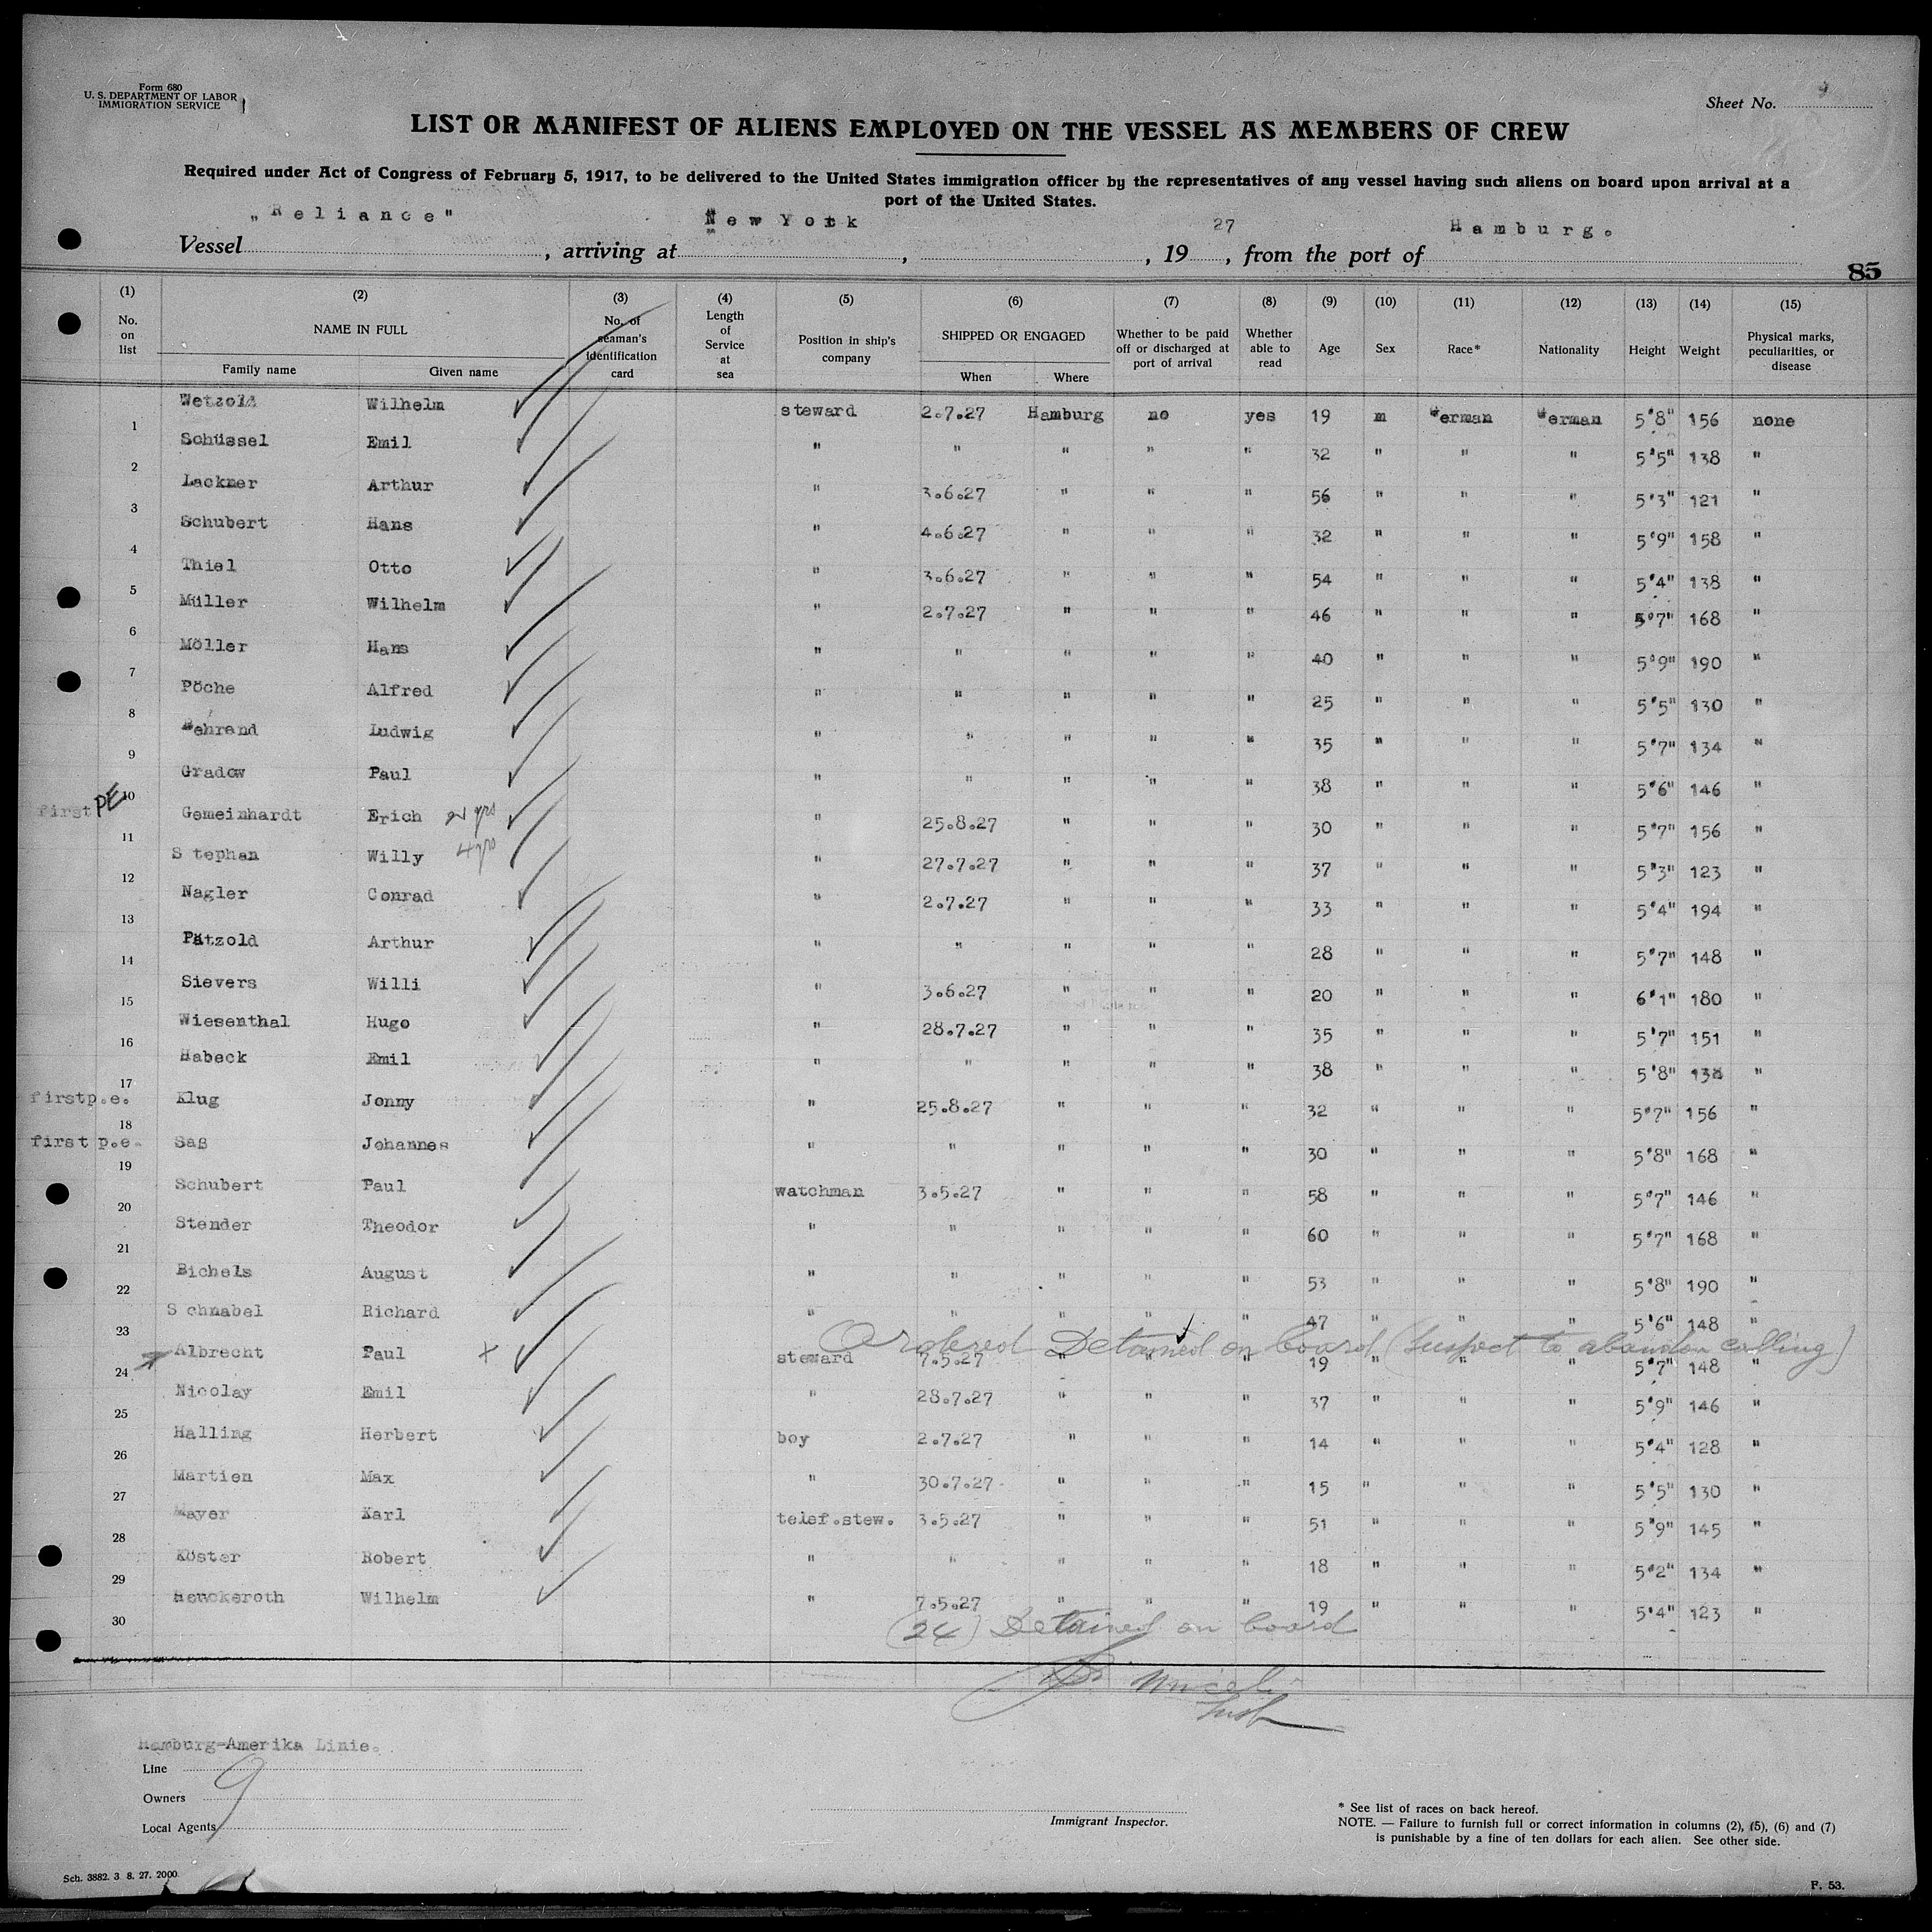 Form 680
U. S. DEPARTMENT OF LABOR
IMMIGRATION SERVICE
Sheet No. 9
LIST OR MANIFEST OF ALIENS EMPLOYED ON THE VESSEL AS MEMBERS OF CREW
Required under Act of Congress of February 5, 1917, to be delivered to the United States immigration officer by the representatives of any vessel having such aliens on board upon arrival at a
port of the United States.
Vessel „Reliance", arriving at New York, , 1927, from the port of Hamburg.
85
(1) (2) (3) (4) (5) (6) (7) (8) (9) (10) (11) (12) (13) (14) (15)
No. on list NAME IN FULL Family name Given name No. of seaman's identification card Length of Service at sea Position in ship's company SHIPPED OR ENGAGED When Where Whether to be paid off or discharged at port of arrival Whether able to read Age Sex Race* Nationality Height Weight Physical marks, peculiarities, or disease
1 Wetzold Wilhelm steward 2.7.27 Hamburg no yes 19 m German German 5'8" 156 none
2 Schüssel Emil " " " " " 32 " " " 5'5" 138 "
3 Lackner Arthur " 3.6.27 " " " 56 " " " 5'3" 121 "
4 Schubert Hans " 4.6.27 " " " 32 " " " 5'9" 158 "
5 Thiel Otto " 3.6.27 " " " 54 " " " 5'4" 138 "
6 Müller Wilhelm " 2.7.27 " " " 46 " " " 5'7" 168 "
7 Möller Hans " " " " " 40 " " " 5'9" 190 "
8 Pöche Alfred " " " " " 25 " " " 5'5" 130 "
9 Behrend Ludwig " " " " " 35 " " " 5'7" 134 "
10 Gradow Paul " " " " " 38 " " " 5'6" 146 "
first PE 11 Gemeinhardt Erich 2 yrs " 25.8.27 " " " 30 " " " 5'7" 156 "
12 Stephan Willy 4 yrs " 27.7.27 " " " 37 " " " 5'3" 123 "
13 Nagler Conrad " 2.7.27 " " " 33 " " " 5'4" 194 "
14 Pätzold Arthur " " " " " 28 " " " 5'7" 148 "
15 Sievers Willi " 3.6.27 " " " 20 " " " 6'1" 180 "
16 Wiesenthal Hugo " 28.7.27 " " " 35 " " " 5'7" 151 "
17 Habeck Emil " " " " " 38 " " " 5'8" "
first p.e. 18 Klug Jonny " 25.8.27 " " " 32 " " " 5'7" 156 "
first p.e. 19 Saß Johannes " " " " " 30 " " " 5'8" 168 "
20 Schubert Paul watchman 3.5.27 " " " 58 " " " 5'7" 146 "
21 Stender Theodor " " " " " 60 " " " 5'7" 168 "
22 Bichels August " " " " " 53 " " " 5'8" 190 "
23 Schnabel Richard " " " " " 47 " " " 5'6" 148 "
Ordered Detained on board (Suspect to abandon calling)
24 Albrecht Paul x steward 7.5.27 " " " 19 " " " 5'7" 148 "
25 Nicolay Emil " 28.7.27 " " " 37 " " " 5'9" 146 "
26 Halling Herbert boy 2.7.27 " " " 14 " " " 5'4" 128 "
27 Martien Max " 30.7.27 " " " 15 " " " 5'5" 130 "
28 Mayer Karl telef.stew. 3.5.27 " " " 51 " " " 5'9" 145 "
29 Köster Robert " " " " " 18 " " " 5'2" 134 "
30 Heuckeroth Wilhelm " 7.5.27 " " " 19 " " " 5'4" 123 "
(24) Detained on board
Insp
Hamburg-Amerika Linie.
Line
Owners
9
Local Agents
Immigrant Inspector.
* See list of races on back hereof.
NOTE. — Failure to furnish full or correct information in columns (2), (5), (6) and (7)
is punishable by a fine of ten dollars for each alien. See other side.
Sch. 3882. 3. 8. 27. 2000
F. 53.